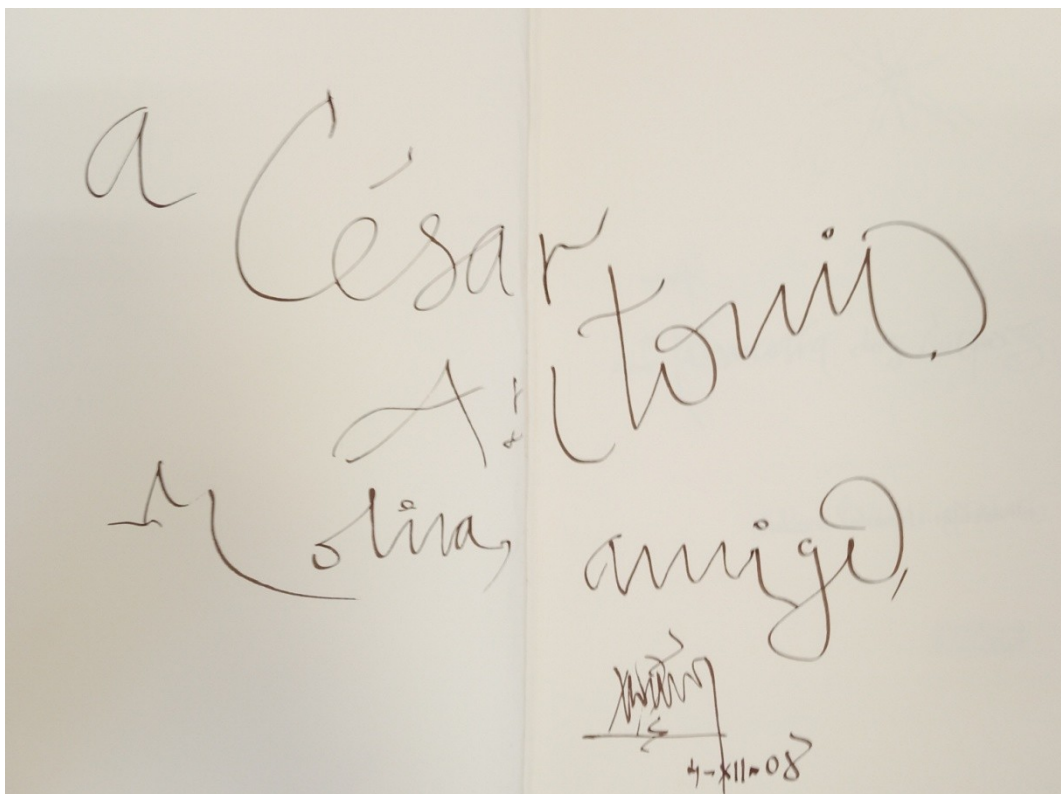 a César
Antonio
Molina, amigo,
4-XII-08